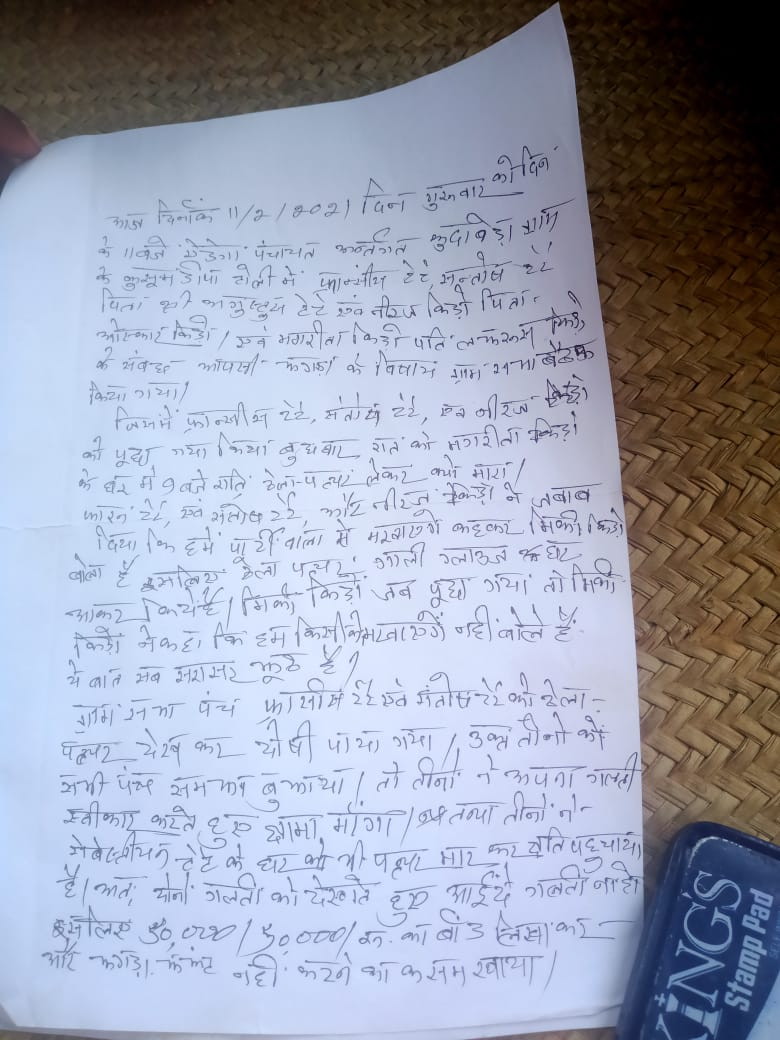 आज दिनांक 11/2/2021 दिन गुरुवार को दिन
के 11 बजे पंचायत अन्तर्गत कुदाबेड़ा ग्राम
के कुसुमडीपा टोली में फ्रान्सीस टेटे, सन्तोष टेटे
पिता श्री टेटे एवं नीरज किड़ो पिता-
ओस्कार किड़ो / एवं मगरीता किड़ो पति किड़ो
के आपसी झगड़ा के विषाय ग्राम सभा बैठक
किया गया/
जिसमें फ्रान्सीस टेटे, संतोष टेटे, एवं नीरज किड़ो
को पूछा गया कि बुधबार रात को मगरीता किड़ो
के घर में 9 बजे रात्रि ढेला-पत्थर लेकर क्यों मारा/
टेटे, एवं संतोष टेटे, और नीरज किड़ो ने जबाब
दिया कि हमें पार्टी वाला से कहकर मिकी किड़ो
बोला है इसलिए ढेला पत्थर गाली गलाऊज घर
आकर किये हैं/ मिकी किड़ो जब पूछा गया तो मिकी
किड़ो ने कहा कि हम किसी को नहीं बोले हैं.
ये बात सब सरासर झूठ है/
ग्राम सभा पंच फ्रासीस टेटे एवं संतोष टेटे को ढेला-
पत्थर देख कर दोषी पाया गया/ उक्त तीनो को
सभी पंच समझा बुझाया/ तो तीनों ने अपना गलती
स्वीकार करते हुए क्षामा माँगा/ तथा तीनों ने-
सेबेस्तीयन टेटे के घर को भी पत्थर मार कर क्षति पहुचाया
है/ अतः दोनों गलती को देखते हुए आईंदे गलती ना हो
इसलिए 50,000/50,000/ रू. का बाँड लिखा कर
और झगड़ा झंझट नहीं करने का कसम खाया/
KING'S
Stamp Pad